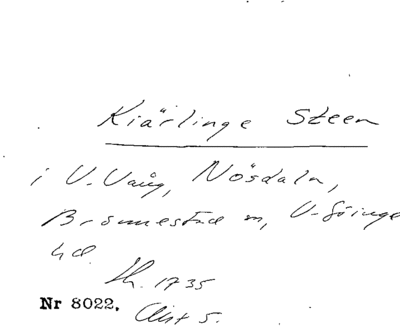 Kiärlinge Steen
i V. Vång, Nösdala,
Brönnestad sn, V. Göinge
hd.
Sk. 1735
Nr 8022. Akt 5.